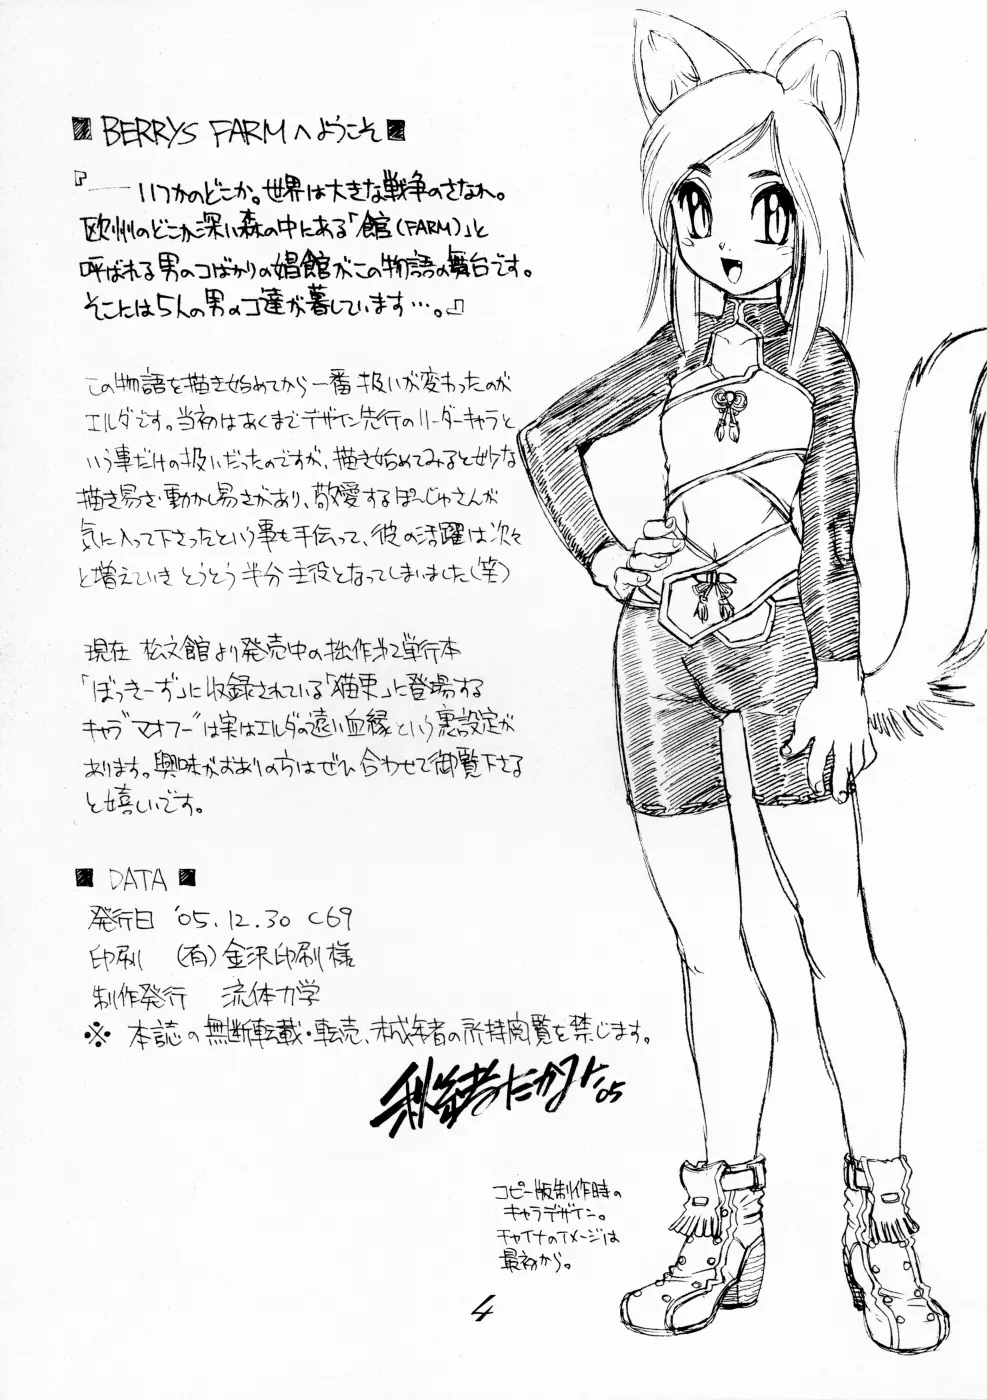 ■ BERRYS FARMへようこそ ■
『――いつかのどこか。世界は大きな戦争のさなか。
欧州のどこか深い森の中にある「館(FARM)」と
呼ばれる男のコばかりの娼館がこの物語の舞台です。
そこには5人の男のコ達が暮しています…。』
この物語を描き始めてから一番扱いが変わったのが
エルダです。当初はあくまでデザイン先行のリーダーキャラと
いう事だけの扱いだったのですが、描き始めてみると妙な
描き易さ・動かし易さがあり、敬愛するぽーじゅさんが
気に入って下さったという事も手伝って、彼の活躍は次々
と増えていきとうとう半分主役となってしまいました(笑)
現在 松文館より発売中の拙作才2単行本
「ぼっきーず」に収録されている「猫東」に登場する
キャラ"マオフー"は実はエルダの遠い血縁という裏設定が
あります。興味がおありの方はぜひ合わせて御覧下さる
と嬉しいです。
■ DATA ■
発行日 '05.12.30 C69
印刷 (有)金沢印刷様
制作発行 流体力学
※ 本誌の無断転載・転売、未成年者の所持閲覧を禁じます。
05
コピー版制作時の
キャラデザイン。
チャイナのイメージは
最初から。
4